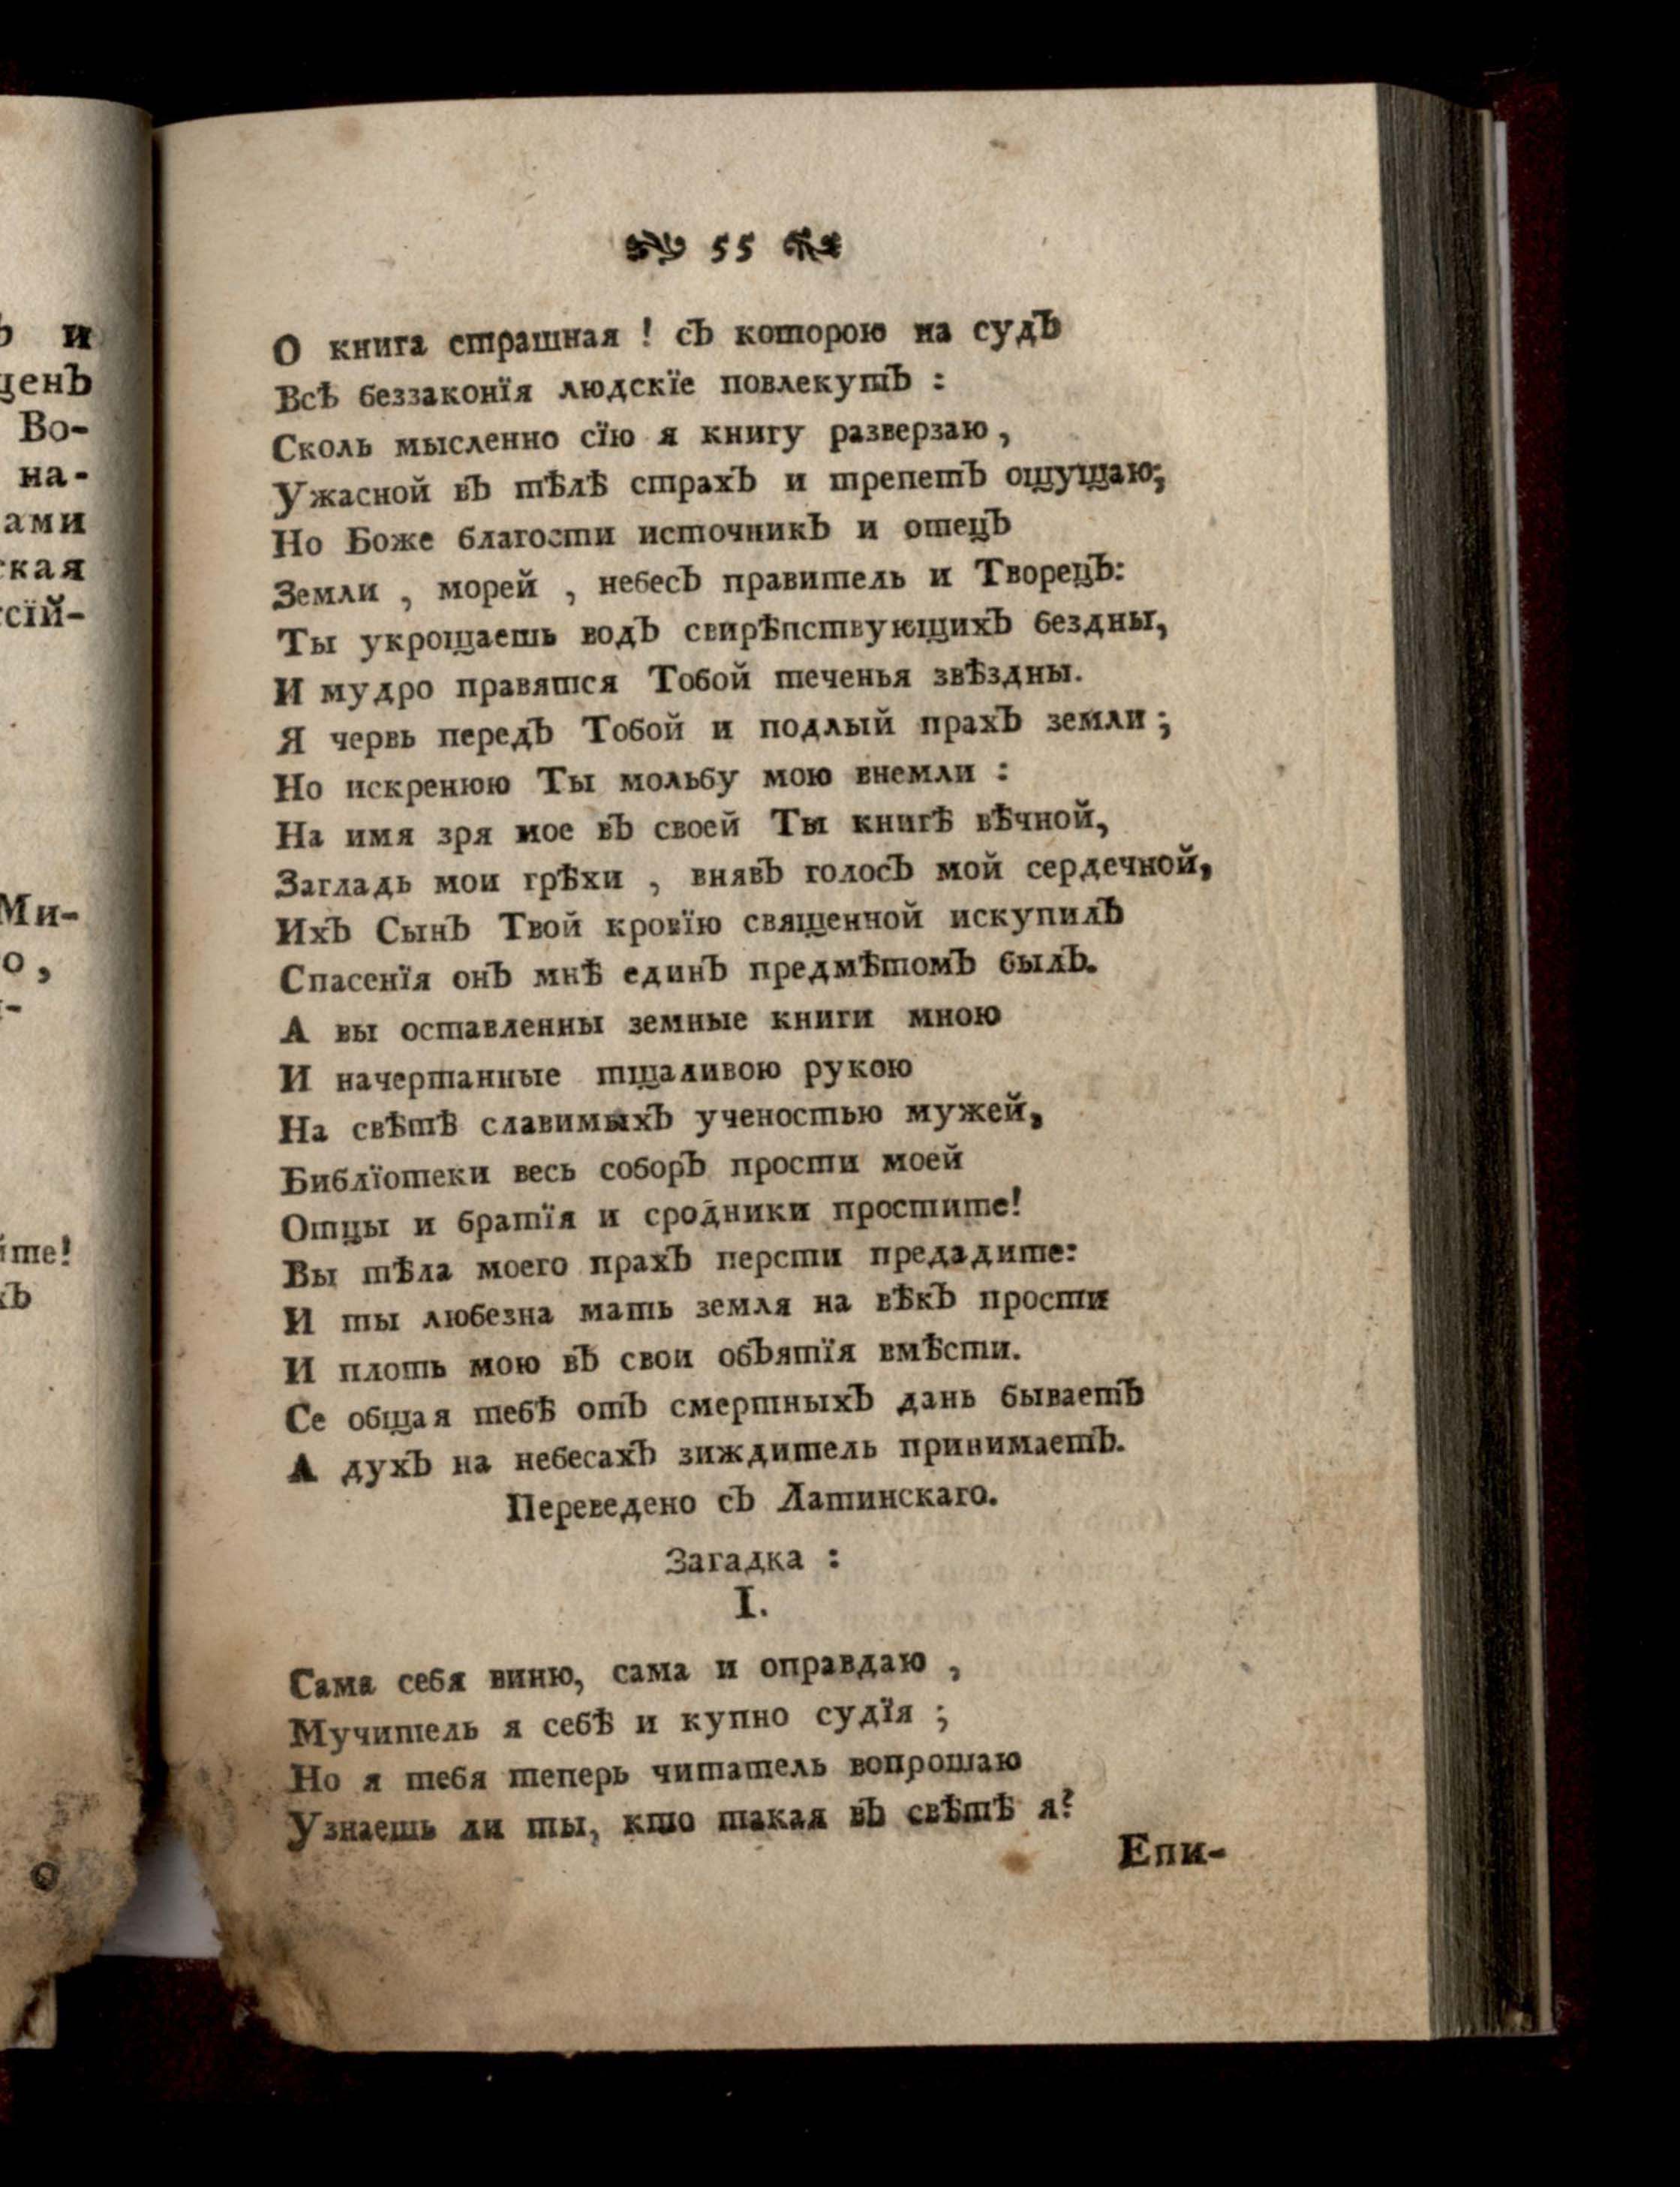 55
О книга страшная ! съ которою на судъ
Всѣ беззаконїя людскїе повлекутъ :
Сколь мысленно сїю я книгу разверзаю ,
Ужасной въ тѣлѣ страхъ и трепетъ ощущаю;
Но Боже благости источникъ и отецъ
Земли , морей , небесъ правитель и Творецъ:
Ты укрощаешь водъ свирѣпствующихъ бездны,
И мудро правятся Тобой теченья звѣздны.
Я червь передъ Тобой и подлый прахъ земли ;
Но искренюю Ты мольбу мою внемли :
На имя зря мое въ своей Ты книгѣ вѣчной,
Загладь мои грѣхи , внявъ голосъ мой сердечной,
Ихъ Сынъ Твой кровїю священной искупилъ
Спасенїя онъ мнѣ единъ предмѣтомъ былъ.
А вы оставленны земные книги мною
И начертанные тщаливою рукою
На свѣтѣ славимыхъ ученостью мужей,
Библїотеки весь соборъ прости моей
Отцы и братїя и сродники простите!
Вы тѣла моего прахъ персти предадите:
И ты любезна мать земля на вѣкъ прости
И плоть мою въ свои объятїя вмѣсти.
Се общая тебѣ отъ смертныхъ дань бываетъ
А духъ на небесахъ зиждитель принимаетъ.
Переведено съ Латинскаго.
Загадка :
I.
Сама себя виню, сама и оправдаю ,
Мучитель я себѣ и купно судїя ;
Но я тебя теперь читатель вопрошаю
Узнаешь ли ты, кто такая въ свѣтѣ я?
Епи-